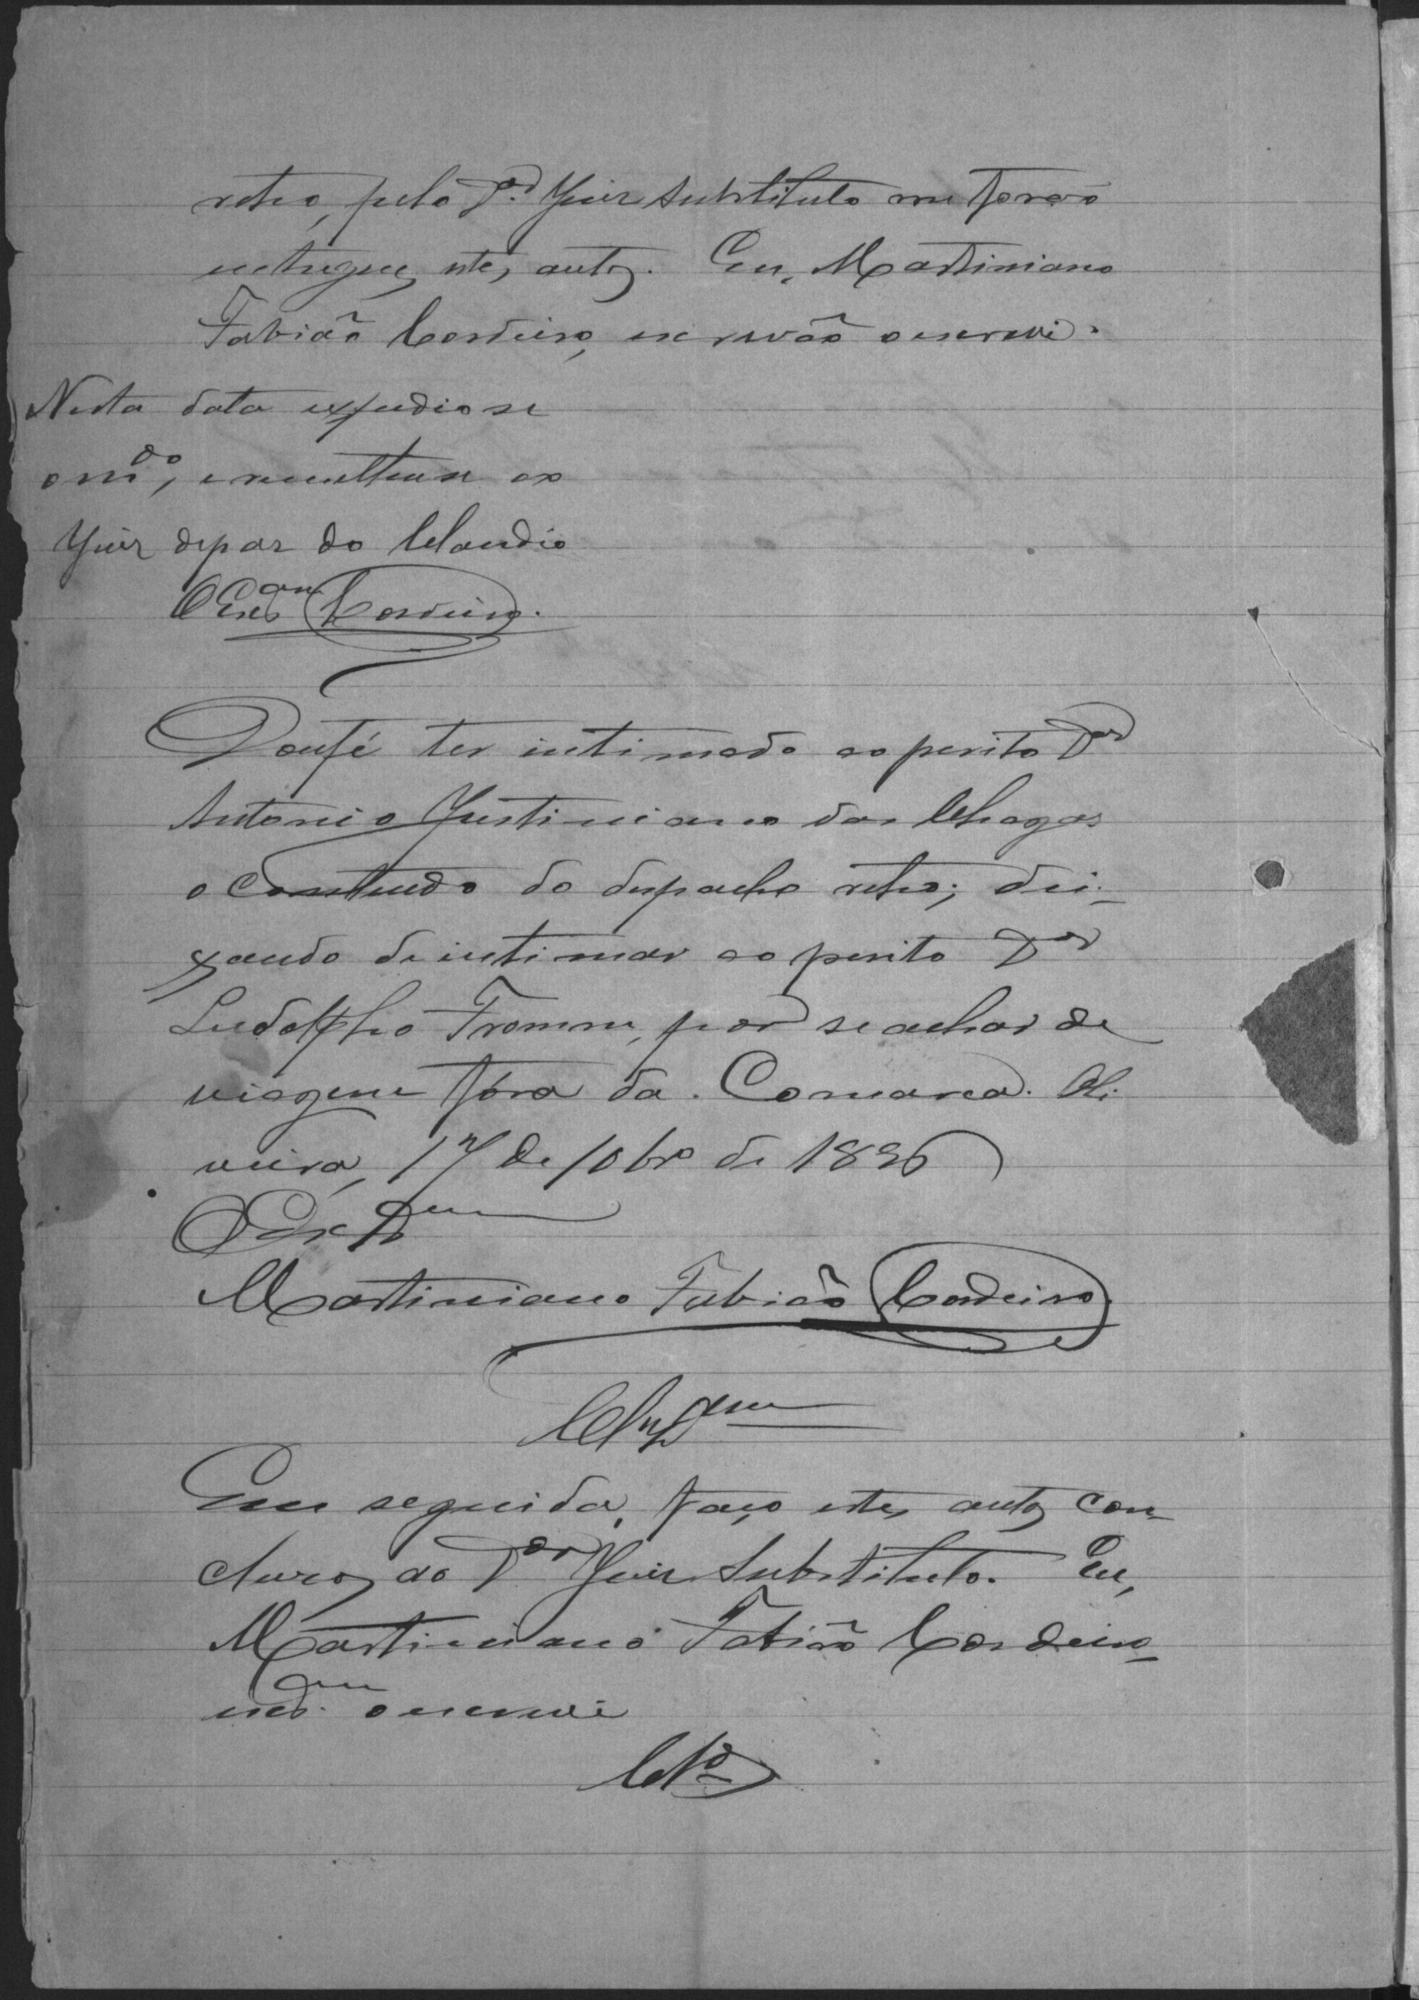 retro, pelo Dor. Juiz Substituto me forão
entregues estes autos. Eu, Martiniano
Fabião Cordeiro, escrivão o escrevi.
Nesta data expedio se
o mdo, e remetteu se ao
Juiz de paz do Claudio
O Escam Cordeiro.
Dou fé ter intimado ao perito Dor
Antonio Justiniano das Chagas
o contheudo do despacho retro; dei-
xando de intimar ao perito Dor
Ludolpho Fromm, por se achar de
viagem fóra da Comarca. Oli
veira, 17 de 10bro de 1896
O Escam
Martiniano Fabião Cordeiro
Clzam
Em seguida, faço estes autos con-
cluzos ao Dor Juiz Substituto. Eu,
Martiniano Fabião Cordeiro
escam o escrevi
Clos